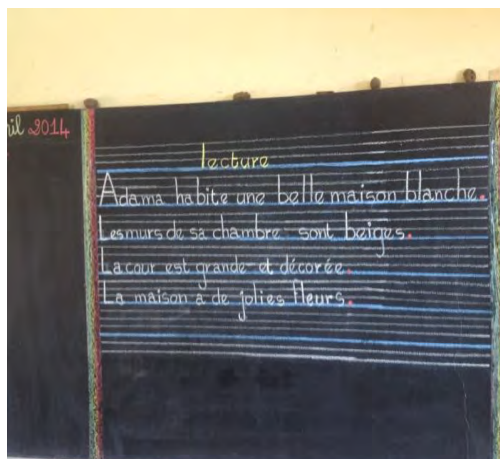 2014
lecture
Adama habite une belle maison blanche.
Les murs de sa chambre sont beiges.
La cour est grande et décorée.
La maison a de jolies fleurs.